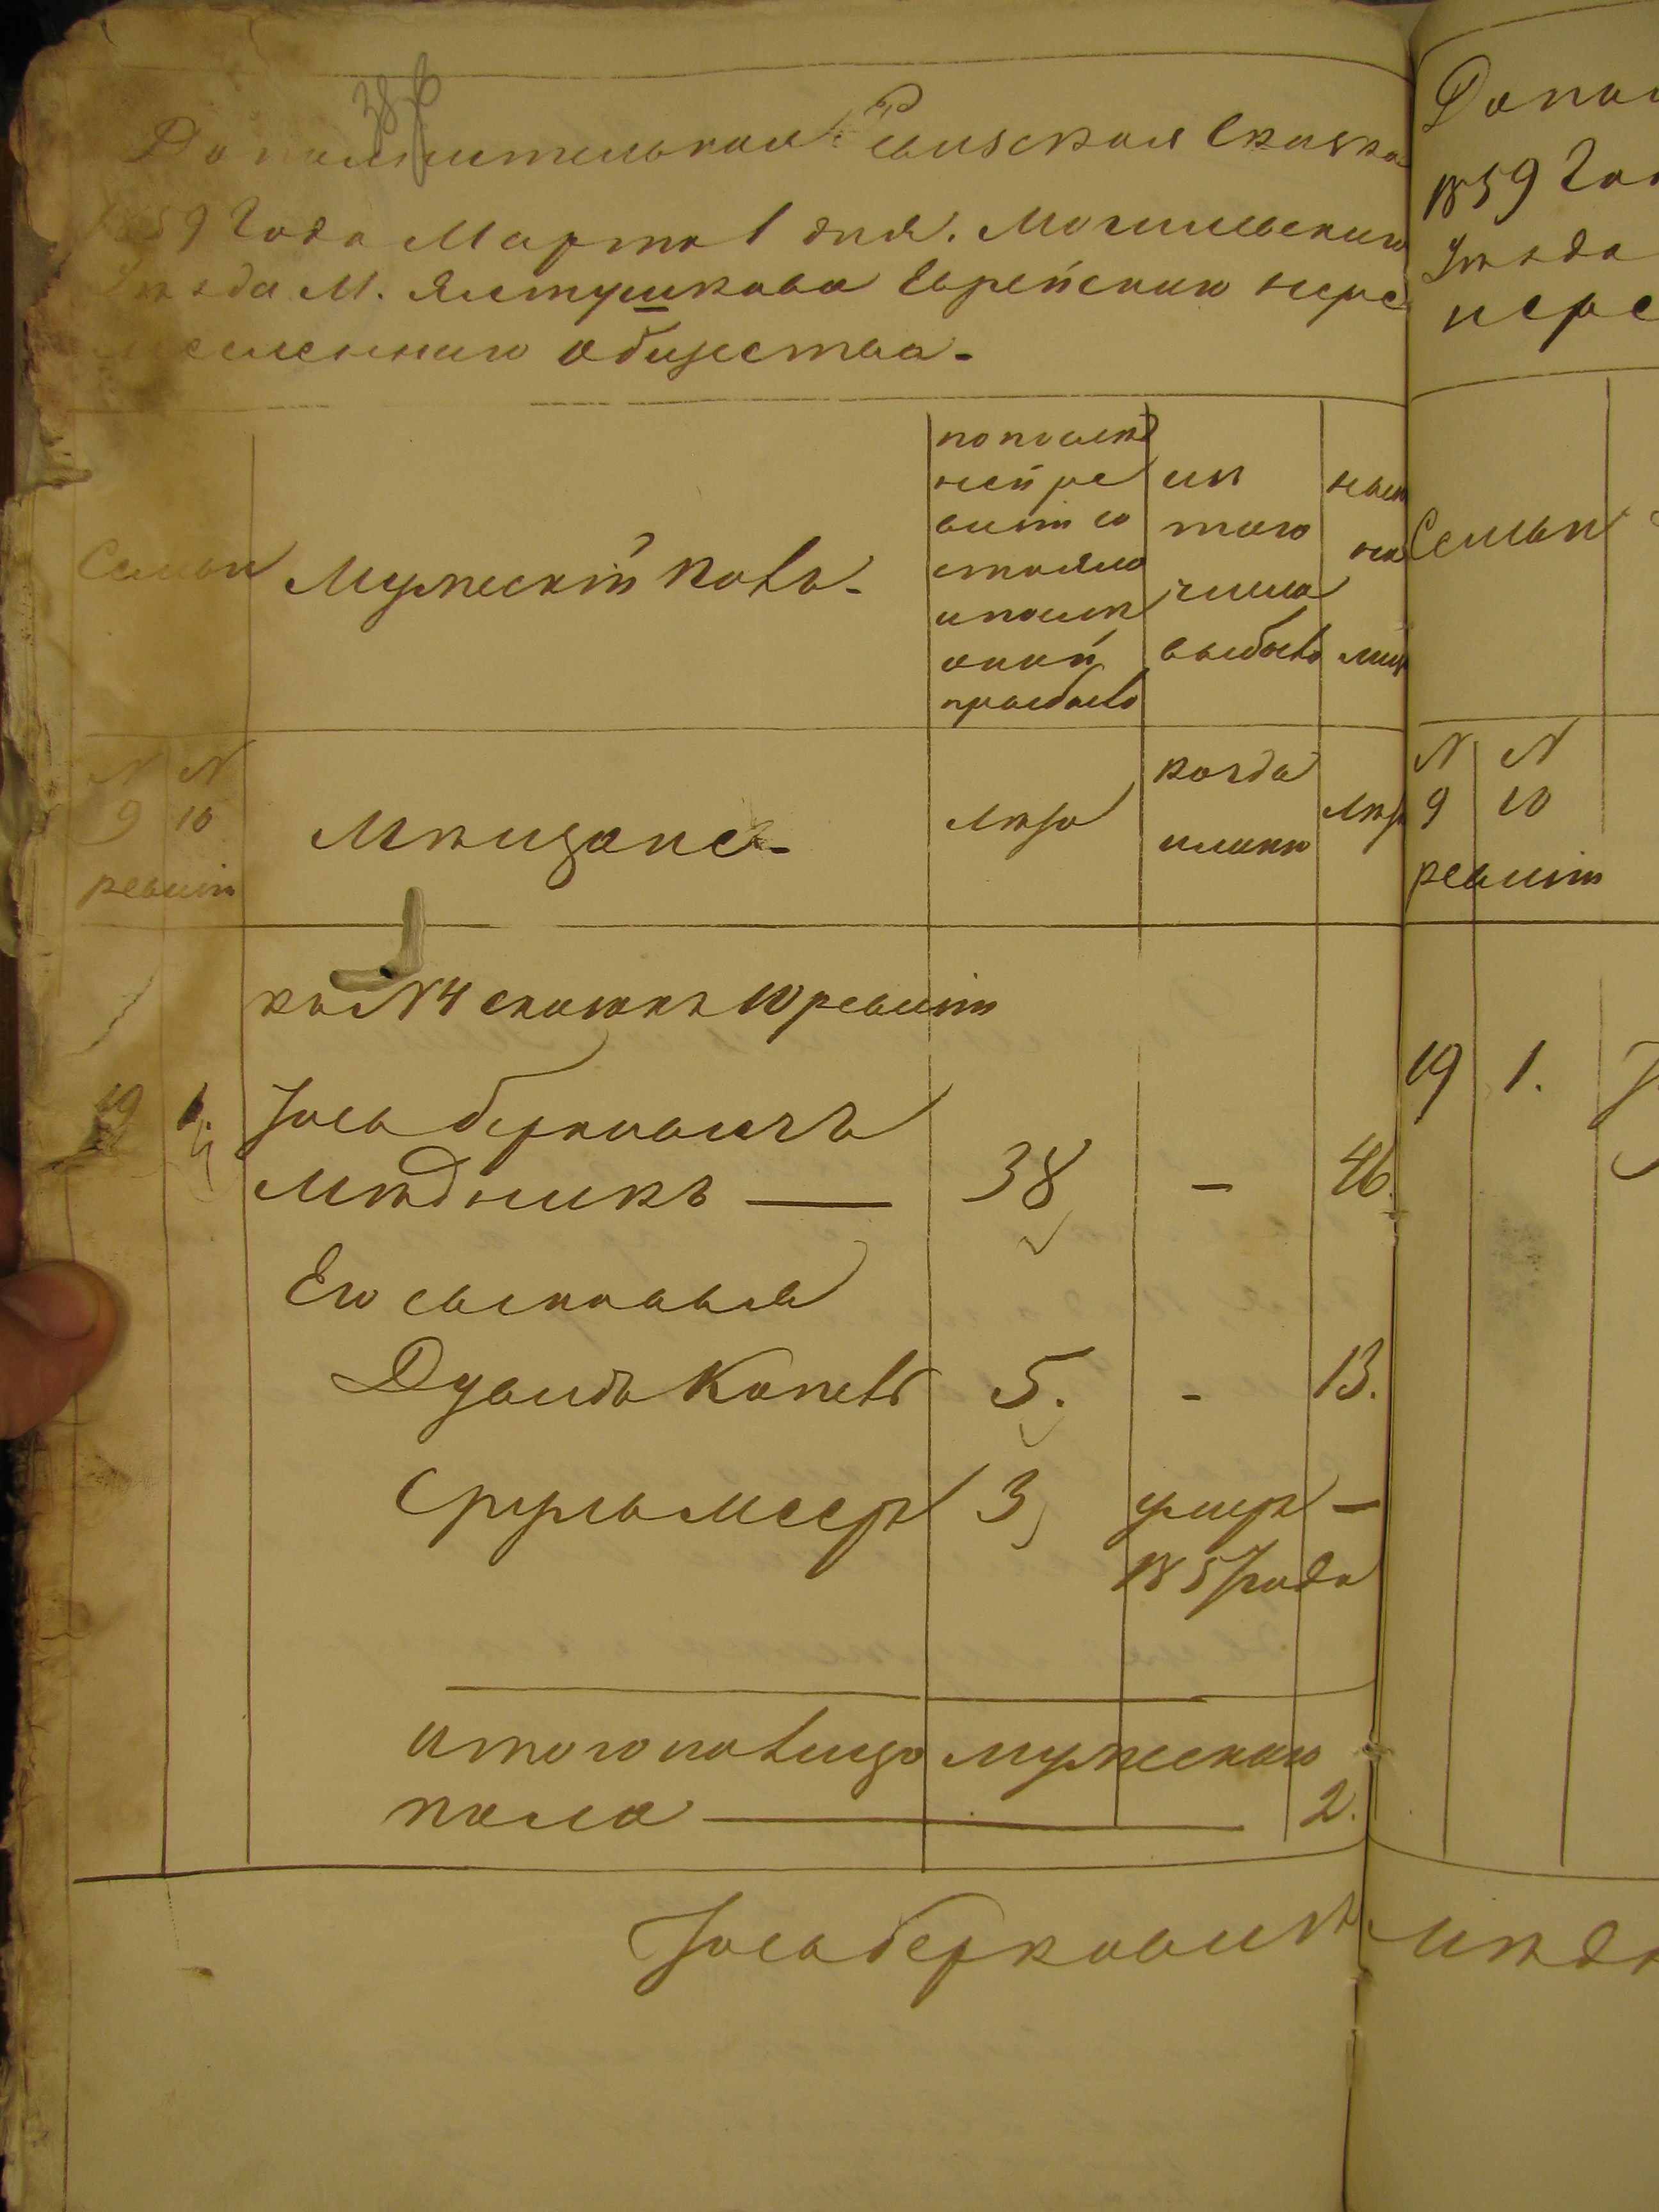 Дополнительная Ревизская Сказка
1859 Года Марта 1 дня. Могилевскаго
Уезда М. Ялтушкова Еврейскаго пере
селеннаго общества.
Семьи
Мужескій полъ.
по послѣд
ней ре
визіи со
стояло
и послѣ
оной
прибыло
изъ
того
числа
выбыло
нын
ли
N N
9 10
ревизіи
Мѣщане.
лѣта
когда
имянно
Лѣт
къ N 4 сказкѣ 10 ревизіи
19 1. Іось Берковичъ
Мѣдникъ — 38 - 46.
Его сыновья
Дувидъ Копель 5. - 13.
Сруль Меер 3 умеръ —
1857 года
Итого на лицо мужескаго
пола — 2.
Іось Беркович Мѣдн
Допол
1859 Го
Уѣзда
пере
Семьи
N N
9 10
ревизіи
19 1.